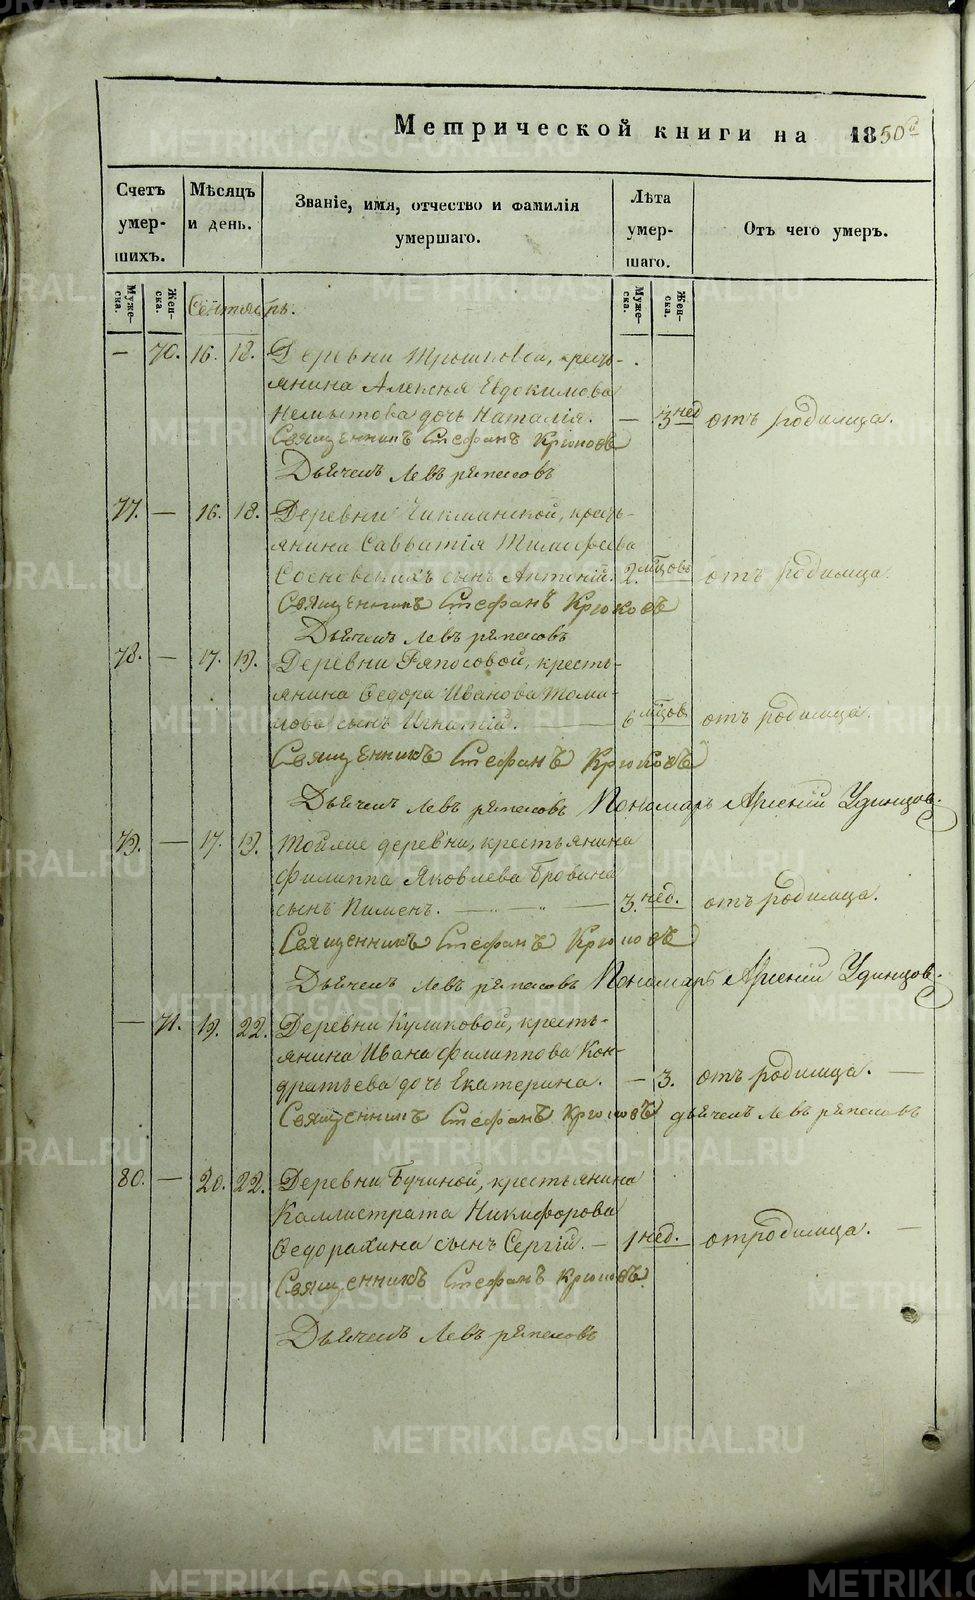 Метрической книги на 1850й
Счетъ умер-шихъ.
Мѣсяцъ и день.
Званіе, имя, отчество и фамилія умершаго.
Лѣта умер-шаго.
Отъ чего умеръ.
Муже-ска.
Жен-ска.
Муже-ска.
Жен-ска.
Сентябрь.
— 70. 16. 18. Деревни кресть-
янина Алексѣя Евдокимова
дочь Наталія. — 3 нед отъ родимца.
Священникъ Стефанъ Крюковъ
Дьячекъ Левъ
77. — 16. 18. Деревни Чикманской, кресть-
янина Савватія Тимофеева
Сосновскихъ сынъ Антоній. 2. мѣцовъ отъ родимца
Священникъ Стефанъ Крюковъ
Дьячекъ Левъ
78. — 17. 19. Деревни Ряпосовой, кресть-
янина Ѳедора Иванова Томи-
лова сынъ Игнатій. — 6 мѣцов отъ родимца.
Священникъ Стефанъ Крюковъ
Дьячекъ Левъ Пономарь Арсеній Удинцов.
79. — 17. 19. Тойже деревни, крестьянина
Филиппа Яковлева
сынъ Пименъ. — „ — 3. нед. отъ родимца.
Священникъ Стефанъ Крюковъ
Дьячекъ Левъ Пономарь Арсеній Удинцов.
— 71. 19. 22. Деревни Куликовой, кресть-
янина Ивана Филиппова Кон-
дратьева дочь Екатерина. — 3. отъ родимца. —
Священникъ Стефанъ Крюковъ дьячекъ Левъ
80. — 20. 22. Деревни Бучиной, крестьянина
Каллистрата Никифорова
Ѳедорахина сынъ Сергій. — 1 нед. отродимца. —
Священникъ Стефанъ Крюковъ
Дьячекъ Левъ
METRIKI.GASO-URAL.RU